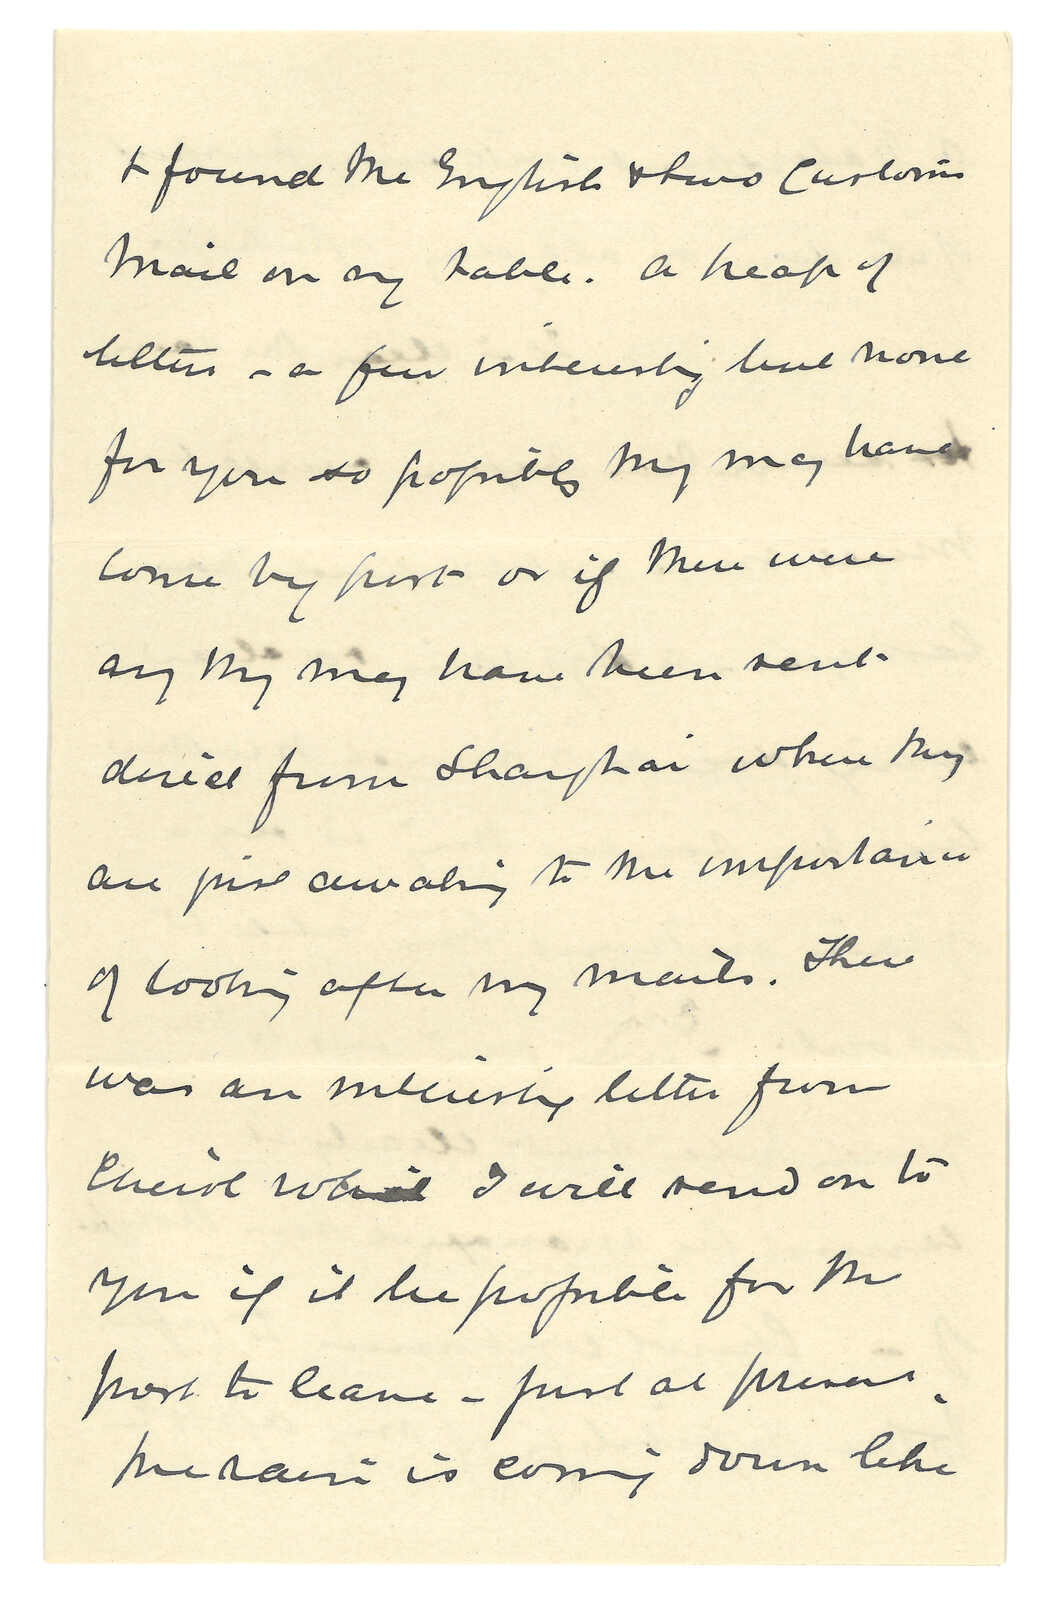 & found the English & two Customs
Mail on my table. A heap of
letters - a few interesting but none
for you so possibly they may have
come by post or if there were
any they may have been sent
direct from Shanghai where they
are just awaking to the importance
of looking after my mails. There
was an interesting letter from
I will send on to
you if it be possible for the
post to leave - just at present
the rain is coming down like